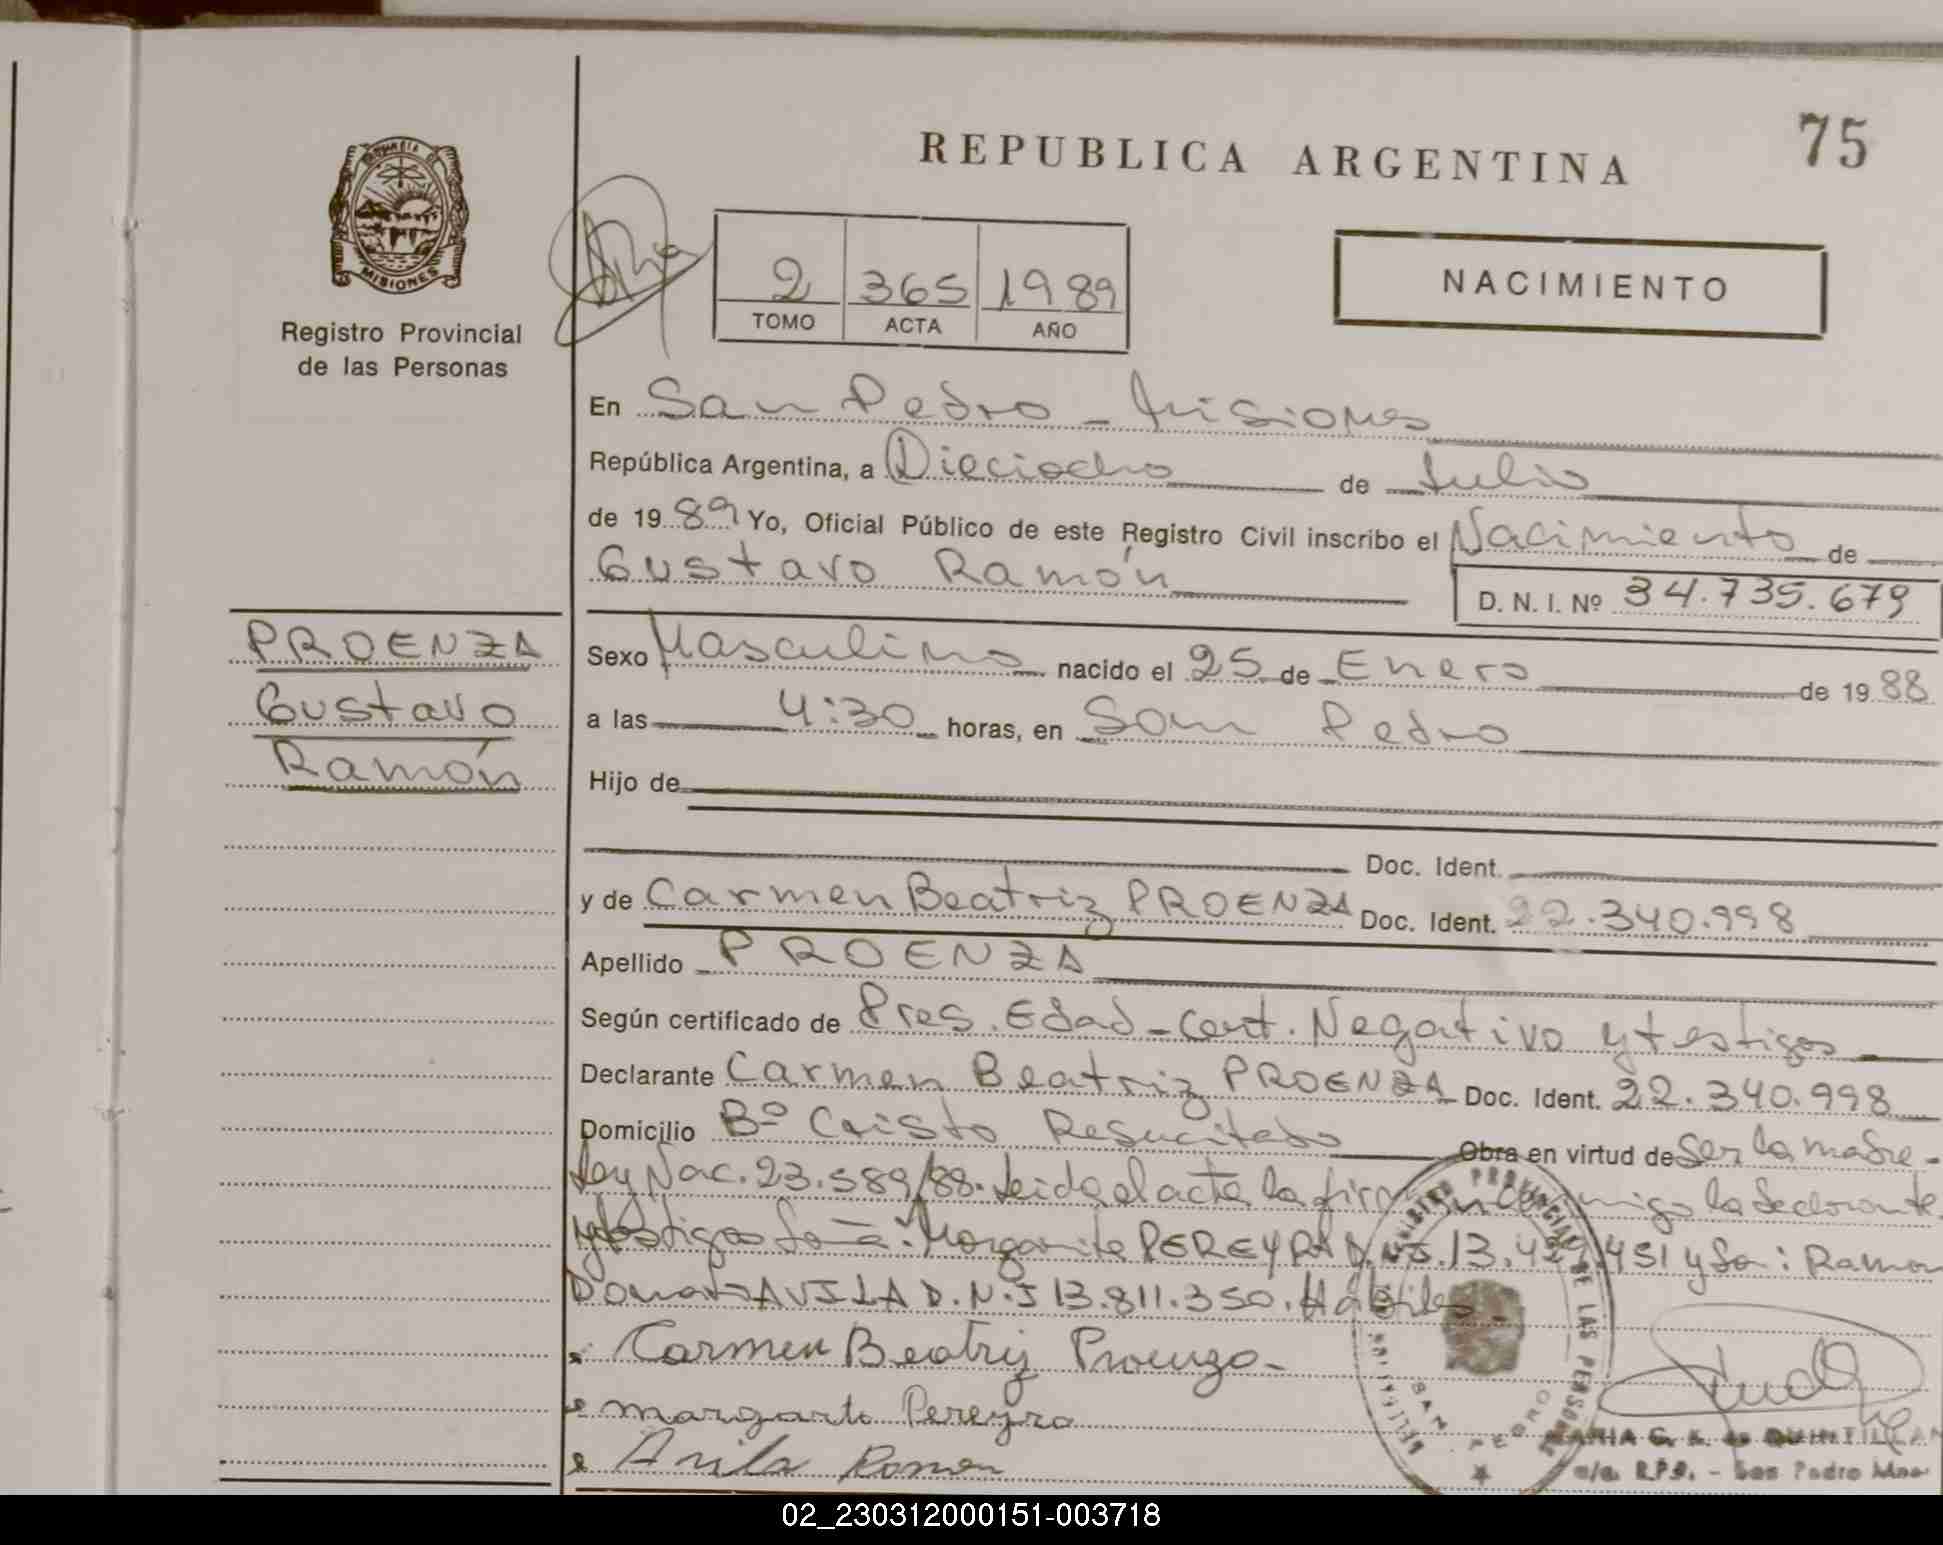 REPUBLICA ARGENTINA
75
PROVINCIA DE
MISIONES
Registro Provincial
de las Personas
2 365 1989
TOMO ACTA AÑO
NACIMIENTO
En San Pedro - Misiones
República Argentina, a Dieciocho de Julio
de 1989 Yo, Oficial Público de este Registro Civil inscribo el Nacimiento de
Gustavo Ramón
D. N. I. Nº 34.735.679
PROENZA
Gustavo
Ramón
Sexo Masculino nacido el 25 de Enero de 1988
a las 4:30 horas, en San Pedro
Hijo de
Doc. Ident.
y de Carmen Beatriz PROENZA Doc. Ident. 22.340.998
Apellido PROENZA
Según certificado de Pres. Edad - Cert. Negativo y testigos
Declarante Carmen Beatriz PROENZA Doc. Ident. 22.340.998
Domicilio Bº Cristo Resucitado Obra en virtud de Ser la madre -
Ley Nac. 23.589/88. Leida el acta la firman conmigo la declarante
y testigos Margarita PEREYRA D.N.I. 13. 451 y Ramon
Donato AVILA D.N.I 13.811.350. Hábiles
Carmen Beatriz Proenza -
margarita Pereyra
Avila Ramon
REGISTRO PROVINCIAL DE LAS PERSONAS
SAN PEDRO
MARIA G. K. de QUINTILLAN
R.P.P. - San Pedro Mnes
02_230312000151-003718